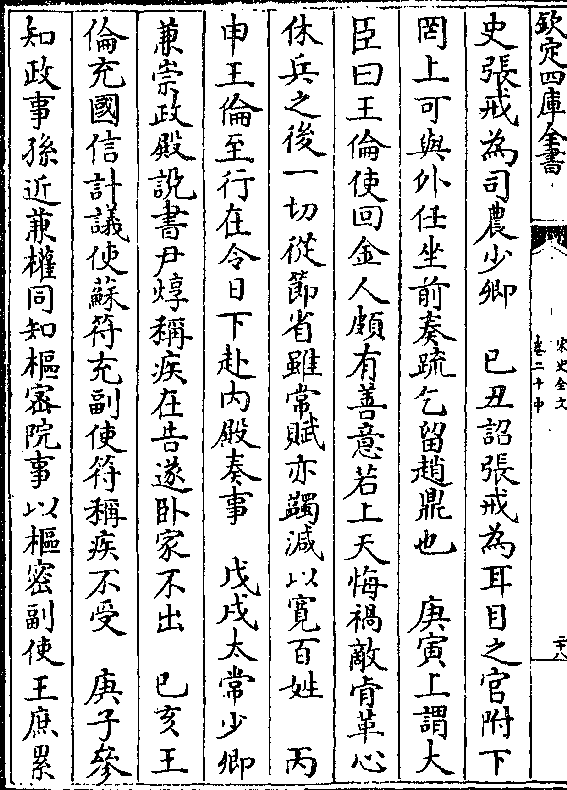 欽定四庫全書
宋史全文
卷二十中
二十八
史張戒為司農少卿　已丑詔張戒為耳目之官附下
罔上可與外任坐前奏疏乞留趙鼎也　庚寅上謂大
臣曰王倫使回金人頗有善意若上天悔禍敵肯革心
休兵之後一切從節省雖常賦亦蠲減以寬百姓　丙
申王倫至行在令日下赴内殿奏事　戊戌太常少卿
兼崇政殿説書尹焞稱疾在告遂卧家不出　已亥王
倫充國信計議使蘇符充副使符稱疾不受　庚子參
知政事孫近兼權同知樞密院事以樞密副使王庶累